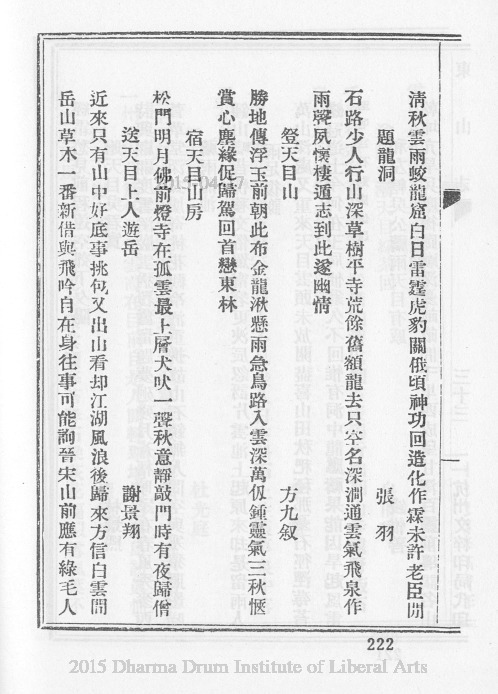 清秋雲雨蛟龍窟白日雷霆虎豹關俄頃神功回造化作霖未許老臣閒
題龍洞　張羽
石路少人行山深草樹平寺荒餘舊額龍去只空名深澗通雲氣飛泉作
雨聲夙懷棲遁志到此遂幽情
登天目山　方九叙
勝地傳浮玉前朝此布金龍湫懸雨急鳥路入雲深萬仭鍾靈氣三秋愜
賞心塵緣促歸駕回首戀東林
宿天目山房
松門明月佛前燈寺在孤雲最上層犬吠一聲秋意靜敲門時有夜歸僧
送天目上人遊岳　謝景翔
近來只有山中好底事挑包又出山看却江湖風浪後歸來方信白雲閒
岳山草木一番新借與飛吟自在身往事可能詢晉宋山前應有綠毛人
222
2015 Dharma Drum Institute of Liberal Arts